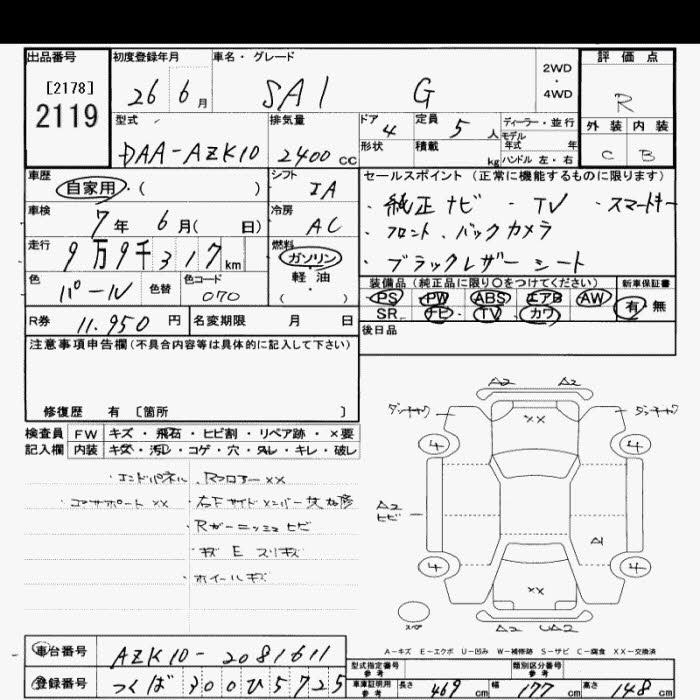 出品番号 初度登録年月 車名・グレード 2WD・4WD 評価点
[2178]
2119 26 6月 SAI G R
型式 排気量 ドア 4 定員 5人 ディーラー・並行
モデル年式 年
外装 内装
DAA-AZK10 2400cc 形状 積載 kg ハンドル 左・右 C B
車歴 自家用・( ) シフト IA セールスポイント (正常に機能するものに限ります)
車検 7年 6月( 日) 冷房 AC ・純正ナビ ・TV ・スマートキー
・フロント、バックカメラ
走行 9万9千317km 燃料 ガソリン ・ブラックレザーシート
軽・油
( )
色 パール 色替 色コード 070
装備品(純正品に限り○をつけてください) 新車保証書
PS PW ABS エアB AW 有・無
SR ナビ TV カワ
R券 11,950円 名変期限 月 日 後日品
注意事項申告欄(不具合内容等は具体的に記入して下さい)
修復歴 有 〔箇所 〕
検査員 FW キズ・飛石・ヒビ割・リペア跡・×要
記入欄 内装 キズ・汚レ・コゲ・穴・スレ・キレ・破レ
・エンドパネル、Rフロアー××
・コアサポート×× ・右Fサイドメンバー
・Rガーニッシュヒビ
・キズ E スリキズ
・ホイールキズ
A2 A2
××
4 4
A2
ヒビ
A1
4 4
××
スペア
A2 UA2
A-キズ E-エクボ U-凹み W-補修跡 S-サビ C-腐食 XX-交換済
車台番号 AZK10-2081611
登録番号 つくば 300 ひ 5725
型式指定番号 参考 類別区分番号 参考
車庫証明用 参考 長さ 469cm 幅 177cm 高さ 148cm